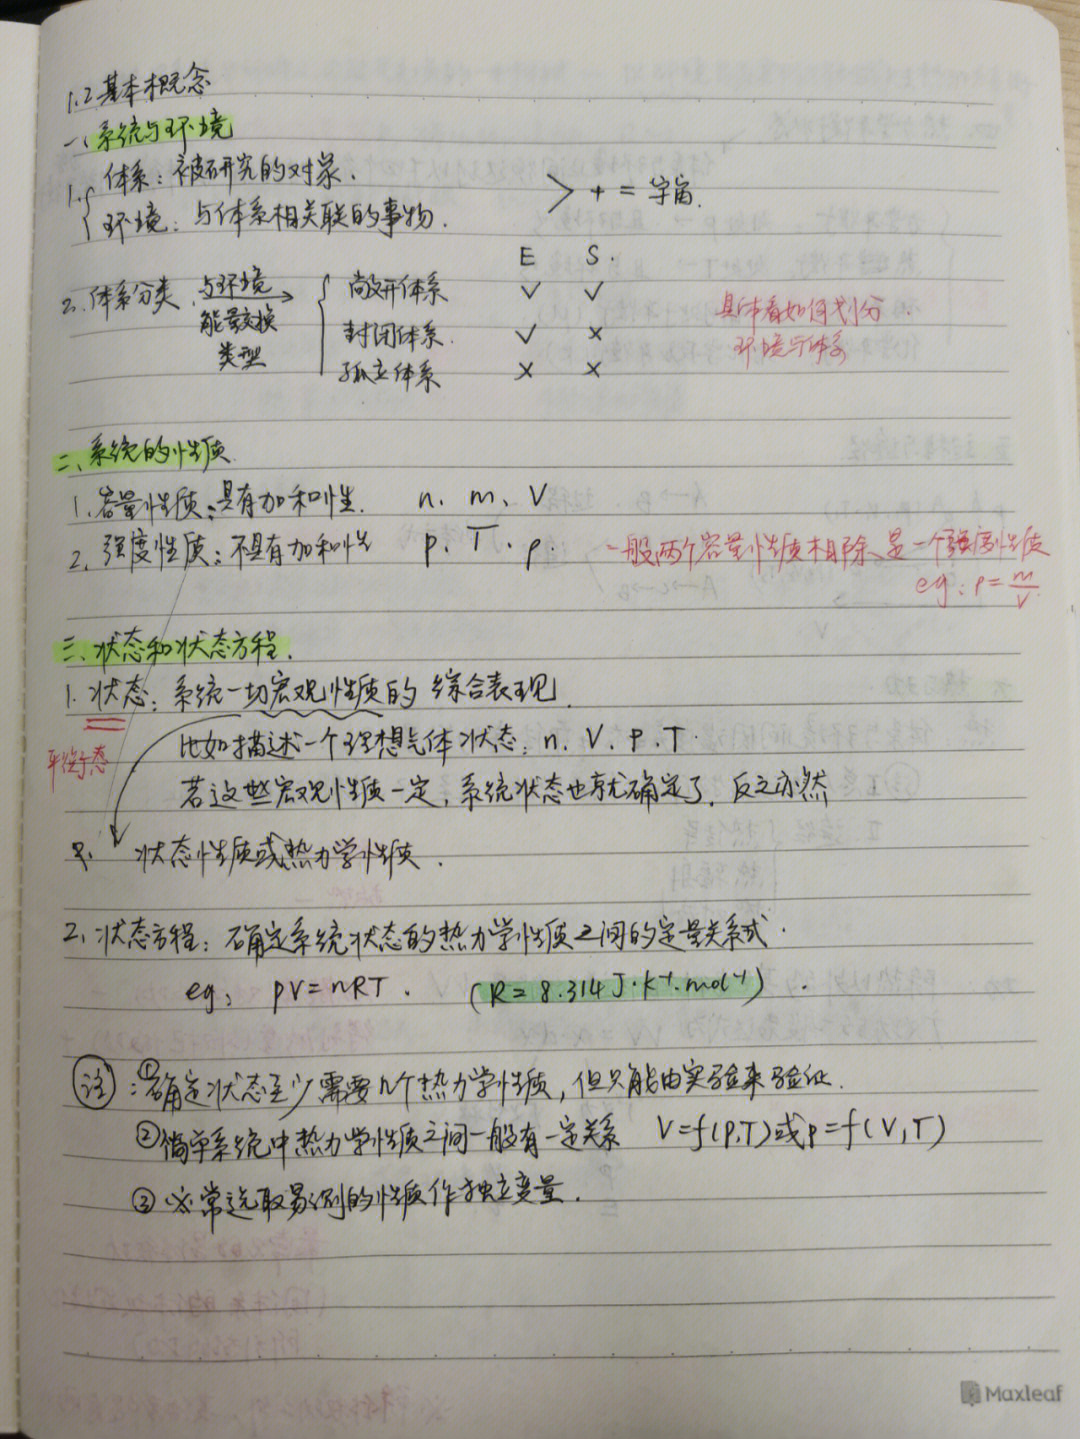 1.2 基本概念
一、系统与环境
1. { 体系：被研究的对象.
环境：与体系相关联的事物.
> + = 宇宙.
E S.
2. 体系分类 与环境能量交换类型 →
{ 敞开体系 ✓ ✓
封闭体系. ✓ ×
孤立体系 × ×
具体看如何划分
环境与体系
二、系统的性质
1. 容量性质：具有加和性. n. m. V
2. 强度性质：不具有加和性 p. T. ρ.
一般两个容量性质相除是一个强度性质
eg: ρ = m/V
三、状态和状态方程.
1. 状态：系统一切宏观性质的 综合表现.
平衡态
比如描述一个理想气体状态：n. V. p. T.
若这些宏观性质一定，系统状态也就确定了. 反之亦然
状态性质或热力学性质.
2. 状态方程：确定系统状态的热力学性质之间的定量关系式.
eg: pV = nRT. (R = 8.314 J·K⁻¹·mol⁻¹).
注：①确定状态至少需要几个热力学性质，但只能由实验来验证.
②简单系统中热力学性质之间一般有一定关系 V=f(p,T)或p=f(V,T)
③ 常选取易测的性质作独立变量.
Maxleaf